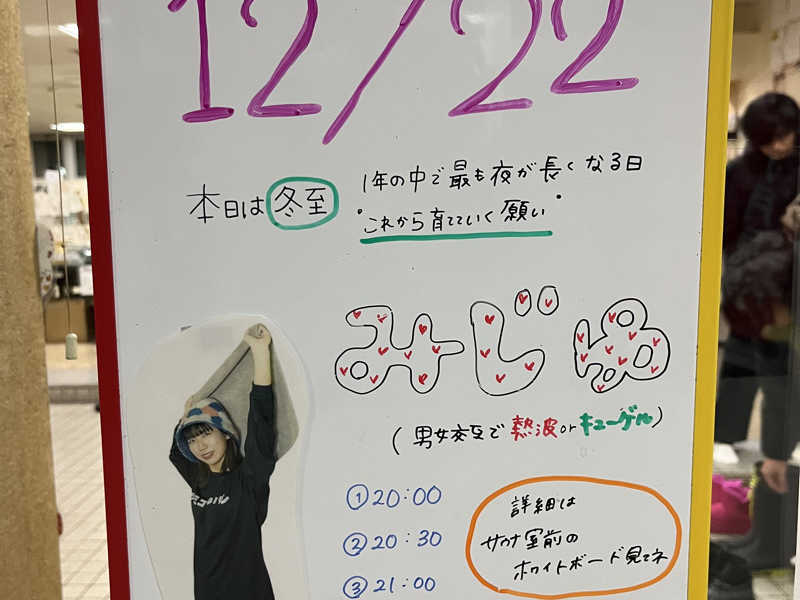 12/22
本日は冬至
1年の中で最も夜が長くなる日
"これから育てていく願い"
みじゅ
(男女交互で熱波orキューゲル)
①20:00
②20:30
③21:00
詳細は
サウナ室前の
ホワイトボード見てネ